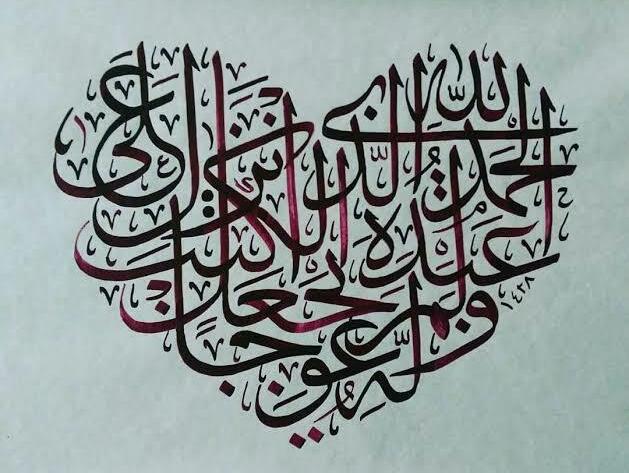 الحمد لله الذي أنزل على
عبده الكتاب
ولم يجعل
له عوجا
١٤٢٨